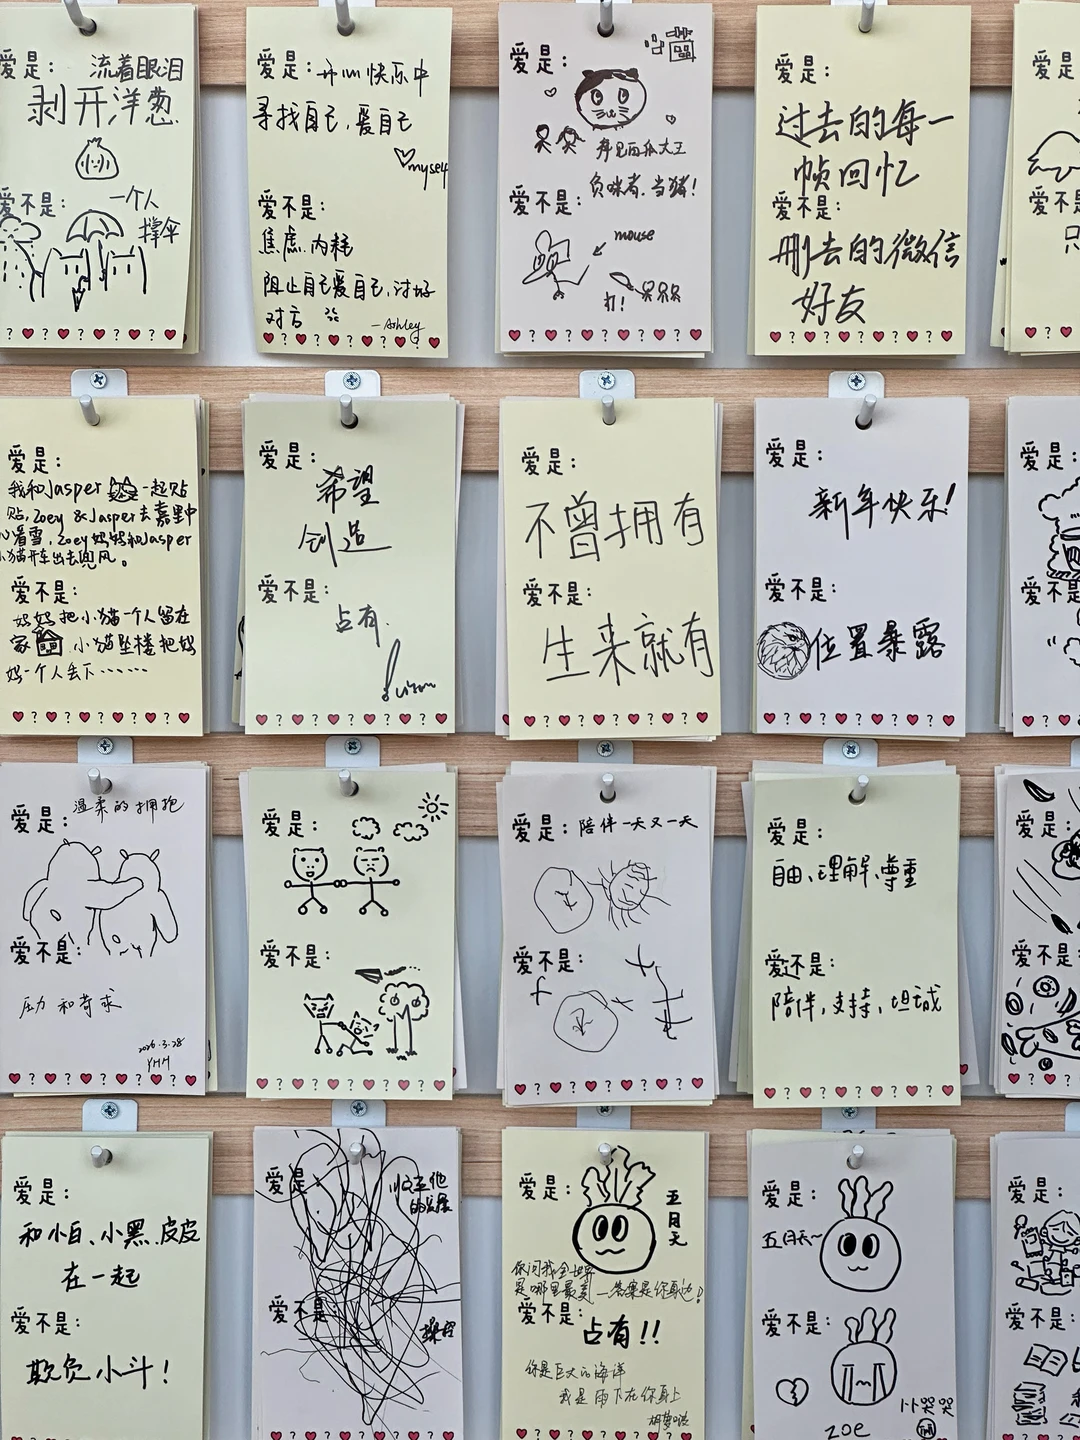 爱是：流着眼泪
剥开洋葱.
爱不是：一个人
撑伞
爱是：开心快乐中
寻找自己，爱自己
myself
爱不是：
焦虑.内耗
阻止自己爱自己，讨好
对方
—Ashley
爱是：
大王
爱不是：负咪者.当猪！
mouse
打！
爱是：
过去的每一
帧回忆
爱不是：
删去的微信
好友
爱是：
我和Jasper 一起贴
贴，Zoey & Jasper去嘉里中
心看雪，Zoey妈妈和Jasper
小猫开车出去兜风。
爱不是：
妈妈把小猫一个人留在
家 小猫坠楼把妈
妈一个人丢下……
爱是：
希望
创造
爱不是：
占有.
爱是：
不曾拥有
爱不是：
生来就有
爱是：
新年快乐！
爱不是：
位置暴露
爱是：温柔的拥抱
爱不是：
压力和苛求
2026.3.28
YHH
爱是：
爱不是：
爱是：陪伴一天又一天
爱不是：
爱是：
自由、理解、尊重
爱还是：
陪伴，支持，坦诚
爱是：
和小白、小黑.皮皮
在一起
爱不是：
欺负小斗！
爱是：
爱不是：
爱是：
五月天
你问我全世界
是哪里最美—答案是你身边！
爱不是：
占有！！
你是巨大的海洋
我是雨下在你身上
爱是：
五月天~
爱不是：
哭哭
zoe
爱是
爱不是
爱是：
爱不是
爱是：
爱不是
爱是：
爱不是：